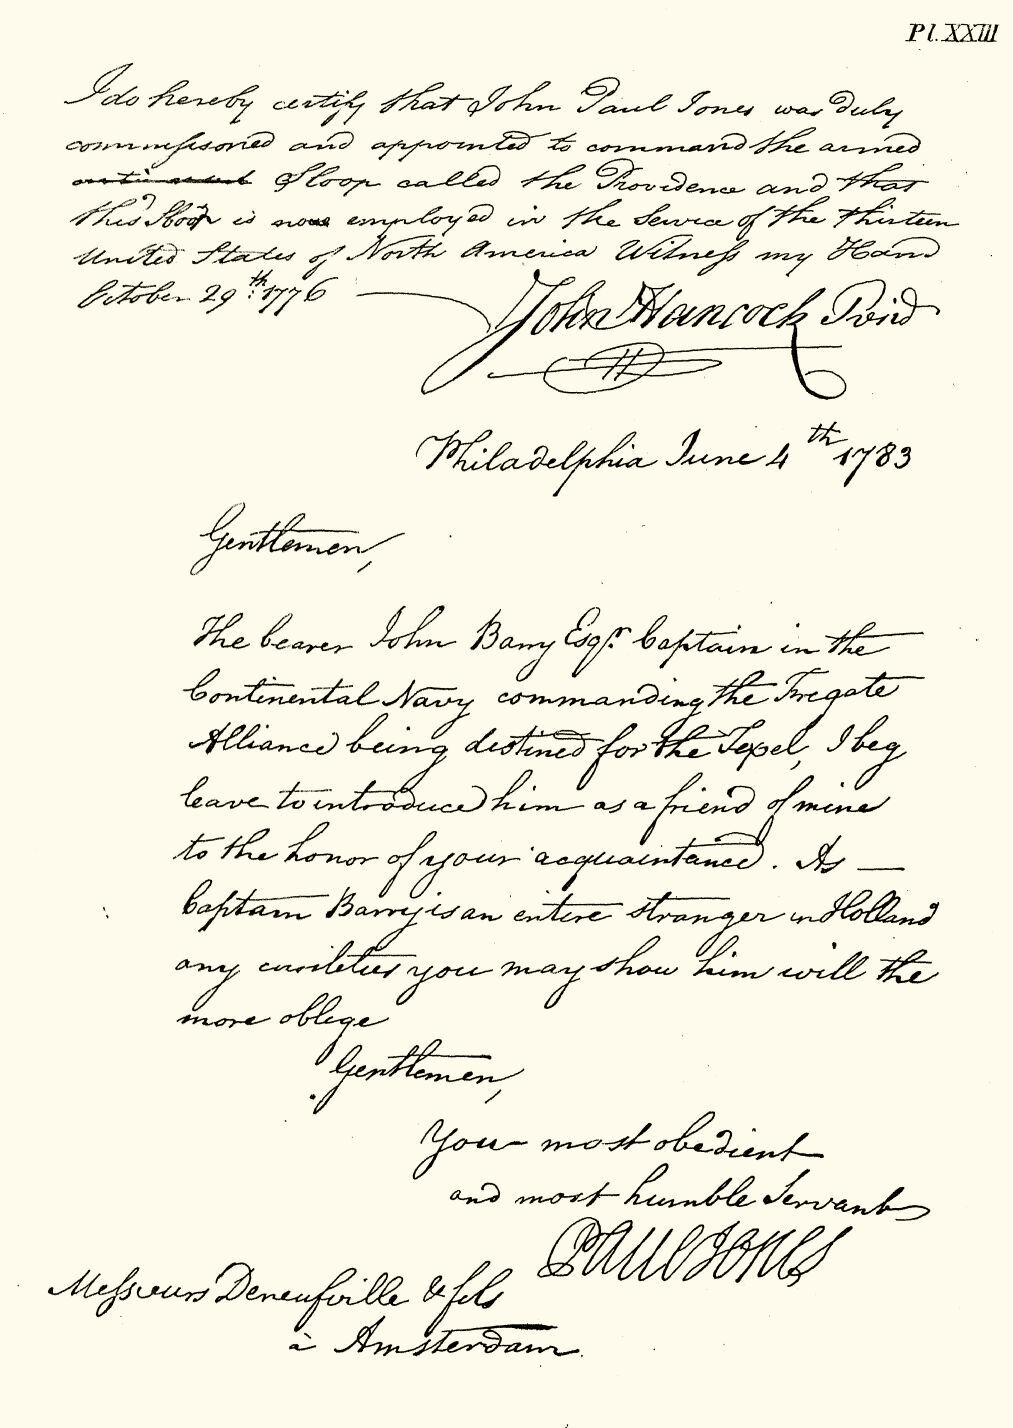 Pl. XXIII
I do hereby certify that John Paul Jones was duly
commissioned and appointed to command the armed
Sloop called the Providence and that
this Sloop is now employed in the Service of the thirteen
United States of North America Witness my Hand
October 29th: 1776
John Hancock Presid
Philadelphia June 4th 1783
Gentlemen,
The bearer John Barry Esqr. Captain in the
Continental Navy commanding the Fregate
Alliance being destined for the Texel, I beg
leave to introduce him as a friend of mine
to the honor of your acquaintance. As —
Captain Barry is an entire stranger in Holland
any civilities you may show him will the
more oblige
Gentlemen,
Your most obedient
and most humble Servant
Paul Jones
Messieurs Deneufville & fils
à Amsterdam.